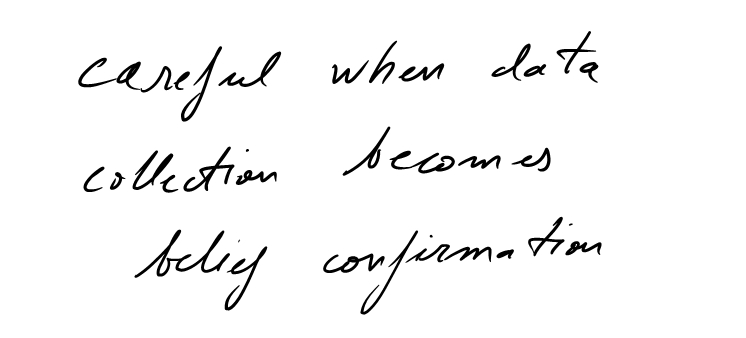 careful when data
collection becomes
belief confirmation